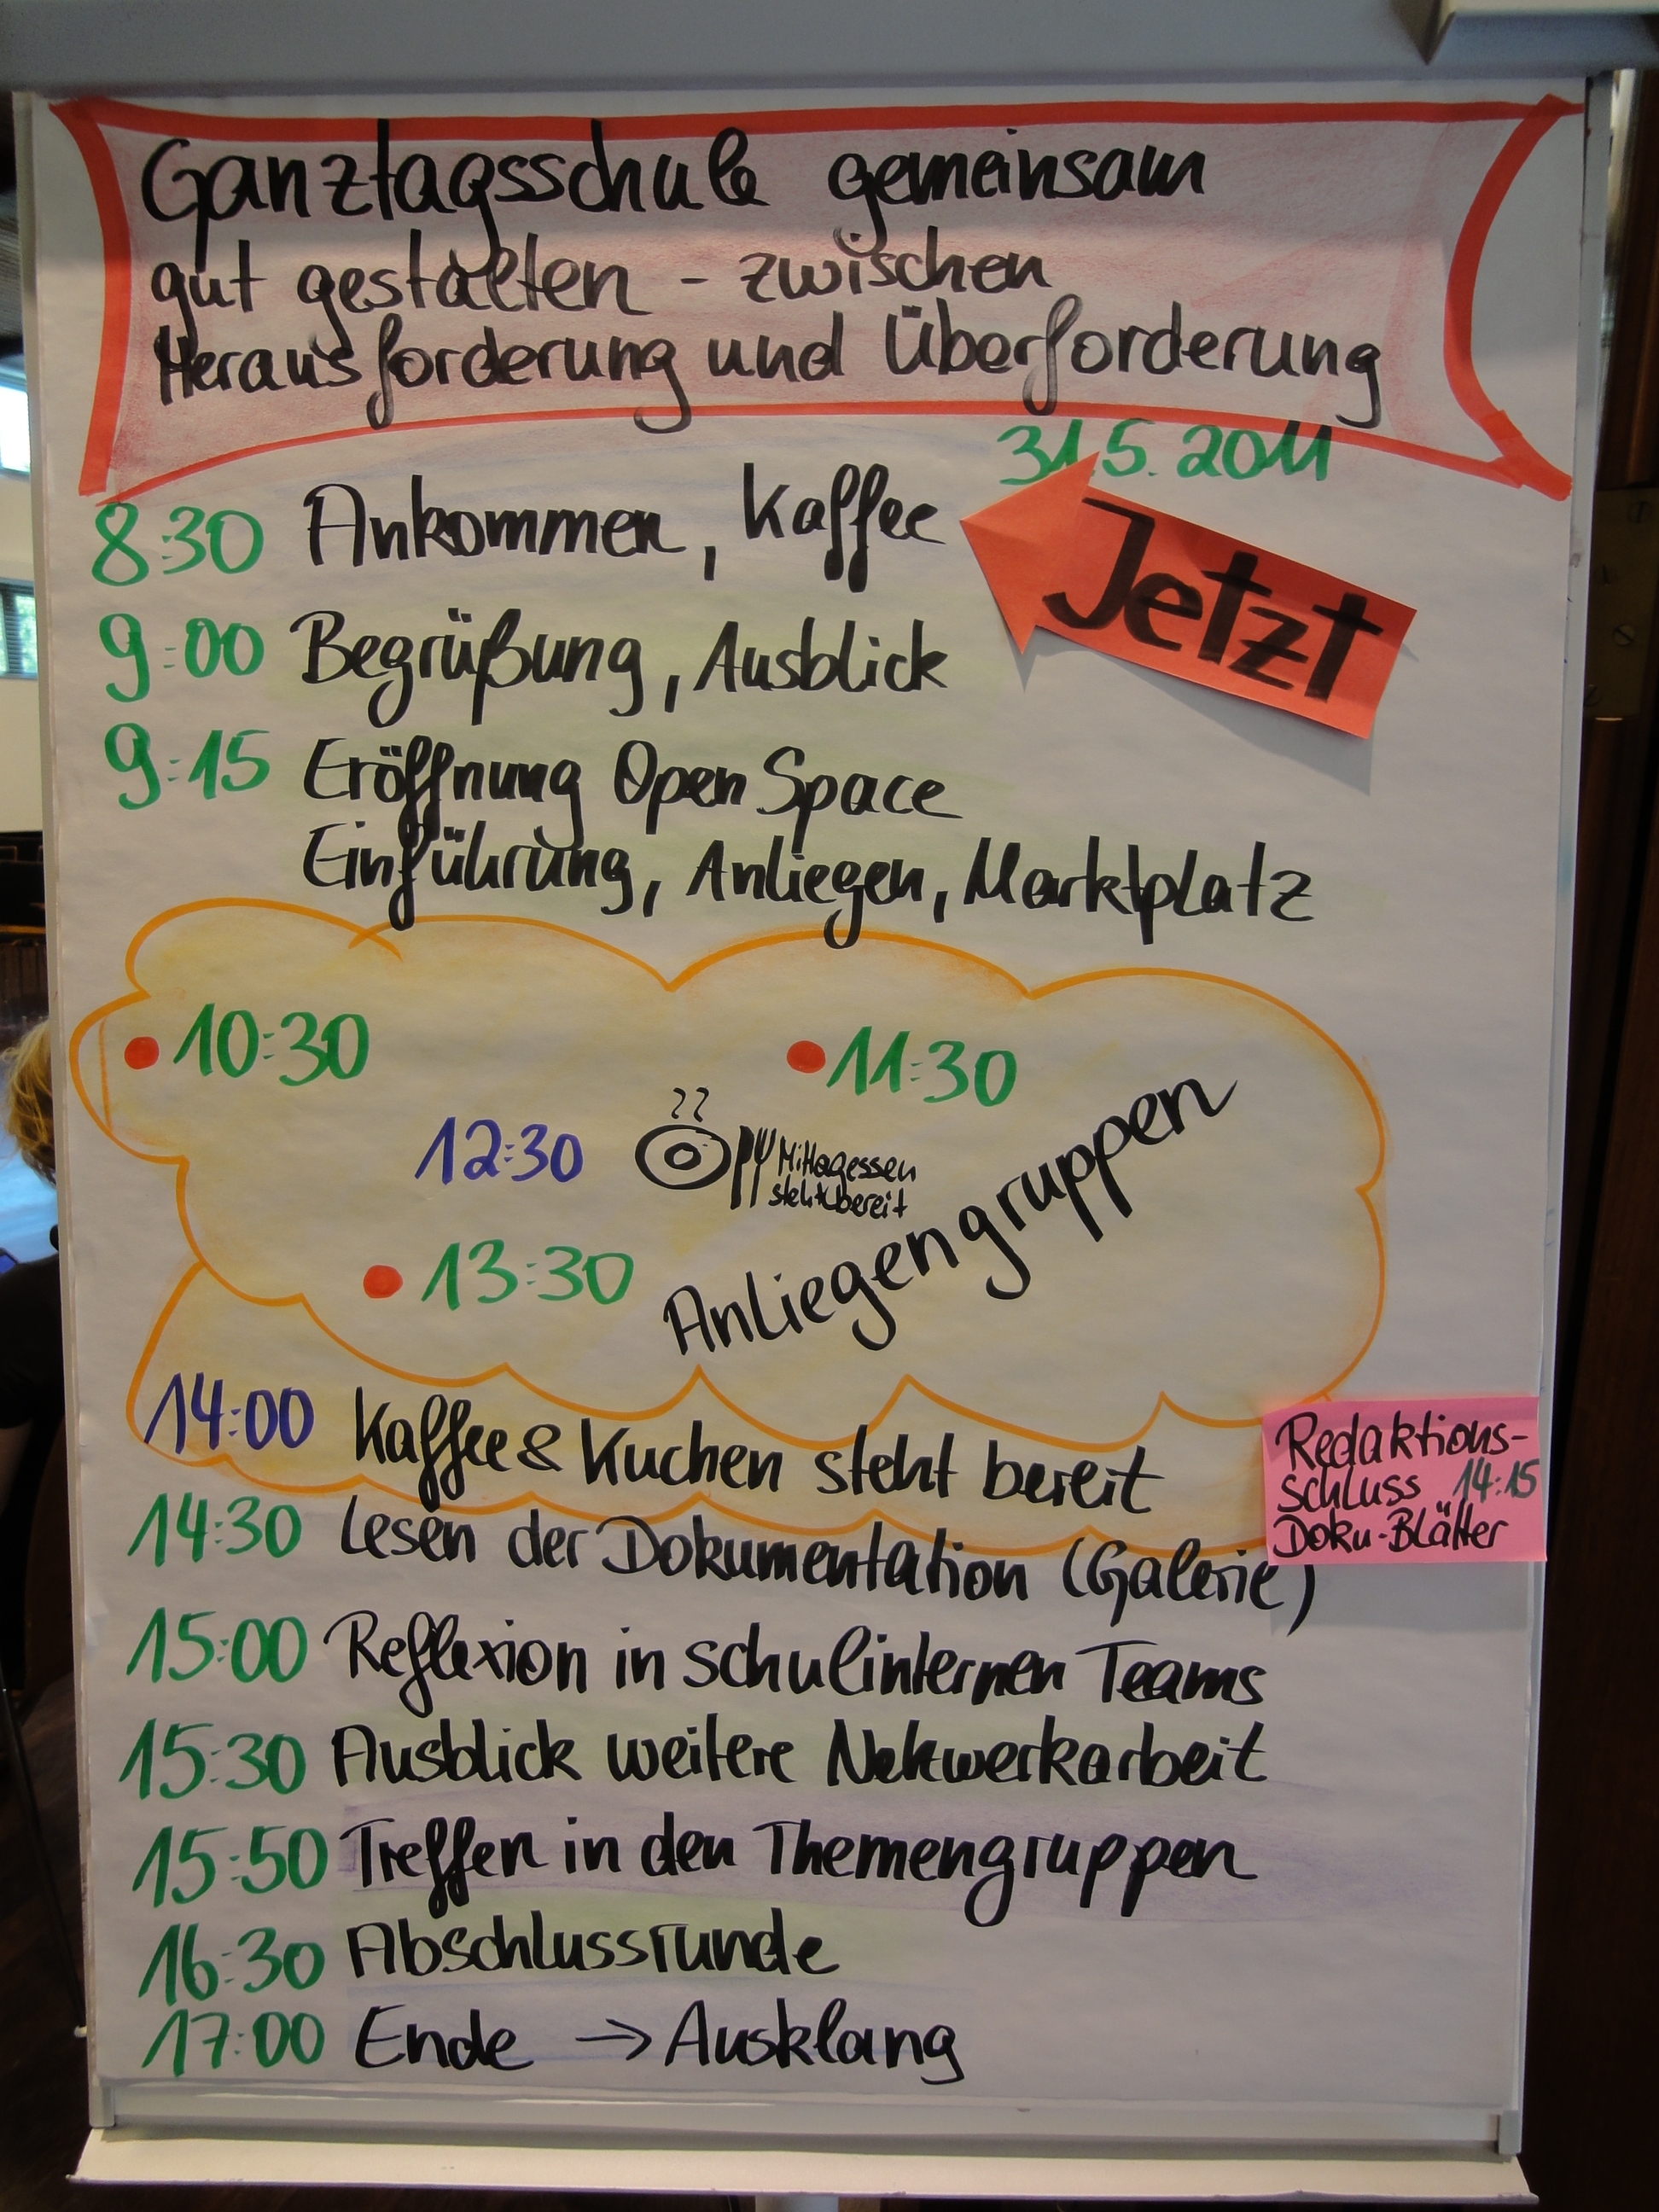 Ganztagsschule gemeinsam
gut gestalten - zwischen
Herausforderung und Überforderung
31.5.2011
8:30 Ankommen, Kaffee
Jetzt
9:00 Begrüßung, Ausblick
9:15 Eröffnung Open Space
Einführung, Anliegen, Marktplatz
10:30
11:30
12:30 Mittagessen
steht bereit
13:30
Anliegengruppen
14:00 Kaffee & Kuchen steht bereit
Redaktions-
schluss 14:15
Doku-Blätter
14:30 Lesen der Dokumentation (Galerie)
15:00 Reflexion in schulinternen Teams
15:30 Ausblick weitere Netzwerkarbeit
15:50 Treffen in den Themengruppen
16:30 Abschlussrunde
17:00 Ende → Ausklang